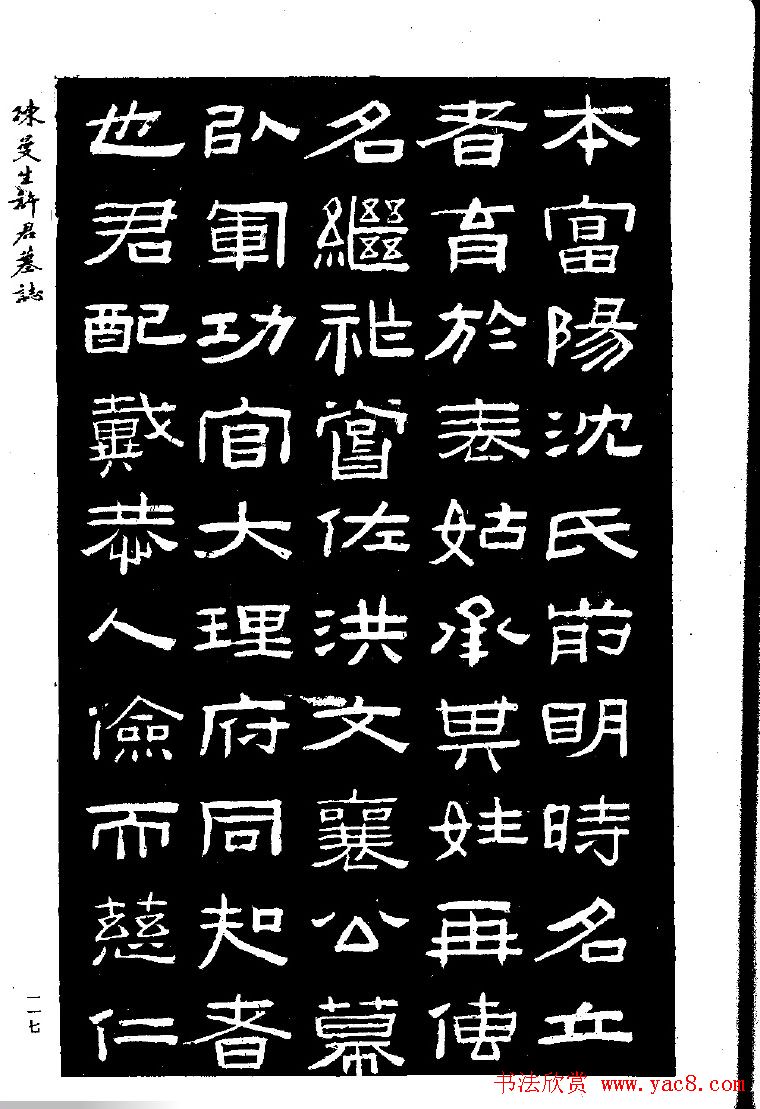 本富陽沈氏前明時名立
者育於表姑承其姓再傳
名繼祉嘗佐洪文襄公幕
以軍功官大理府同知者
也君配戴恭人儉而慈仁
陳曼生許君墓誌
一一七
书法欣赏 www.yac8.com